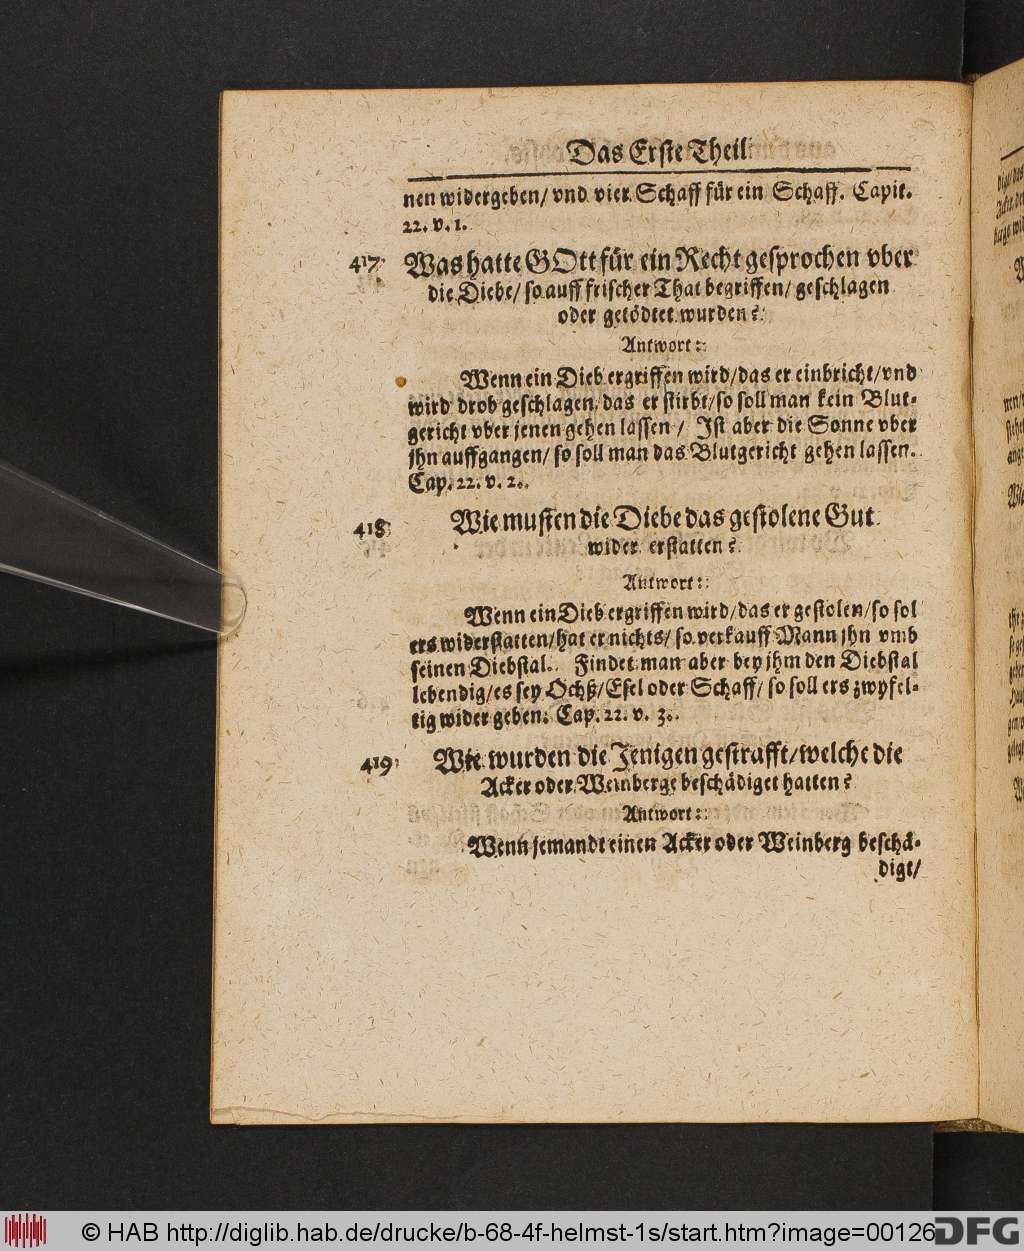 Das Erste Theil
nen widergeben/ vnd vier Schaff für ein Schaff. Capit.
22. v. 1.
417. Was hatte GOtt für ein Recht gesprochen vber
die Diebe/ so auff frischer That begriffen/ geschlagen
oder getödtet wurden?
Antwort:
Wenn ein Dieb ergriffen wird/ das er einbricht/ vnd
wird drob geschlagen, das er stirbt/ so soll man kein Blut-
gericht vber jenen gehen lassen/ Ist aber die Sonne vber
jhn auffgangen/ so soll man das Blutgericht gehen lassen.
Cap. 22. v. 2.
418. Wie musten die Diebe das gestolene Gut
wider erstatten?
Antwort:
Wenn ein Dieb ergriffen wird/ das er gestolen/ so sol
ers widerstatten/ hat er nichts/ so verkauff Mann jhn vmb
seinen Diebstal. Findet man aber bey jhm den Diebstal
lebendig/ es sey Ochß/ Esel oder Schaff/ so soll ers zwyfel-
tig wider geben. Cap. 22. v. 3.
419. Wie wurden die Jenigen gestrafft/ welche die
Acker oder Weinberge beschädiget hatten?
Antwort:
Wenn jemandt einen Acker oder Weinberg beschä-
digt/
© HAB http://diglib.hab.de/drucke/b-68-4f-helmst-1s/start.htm?image=00126
DFG